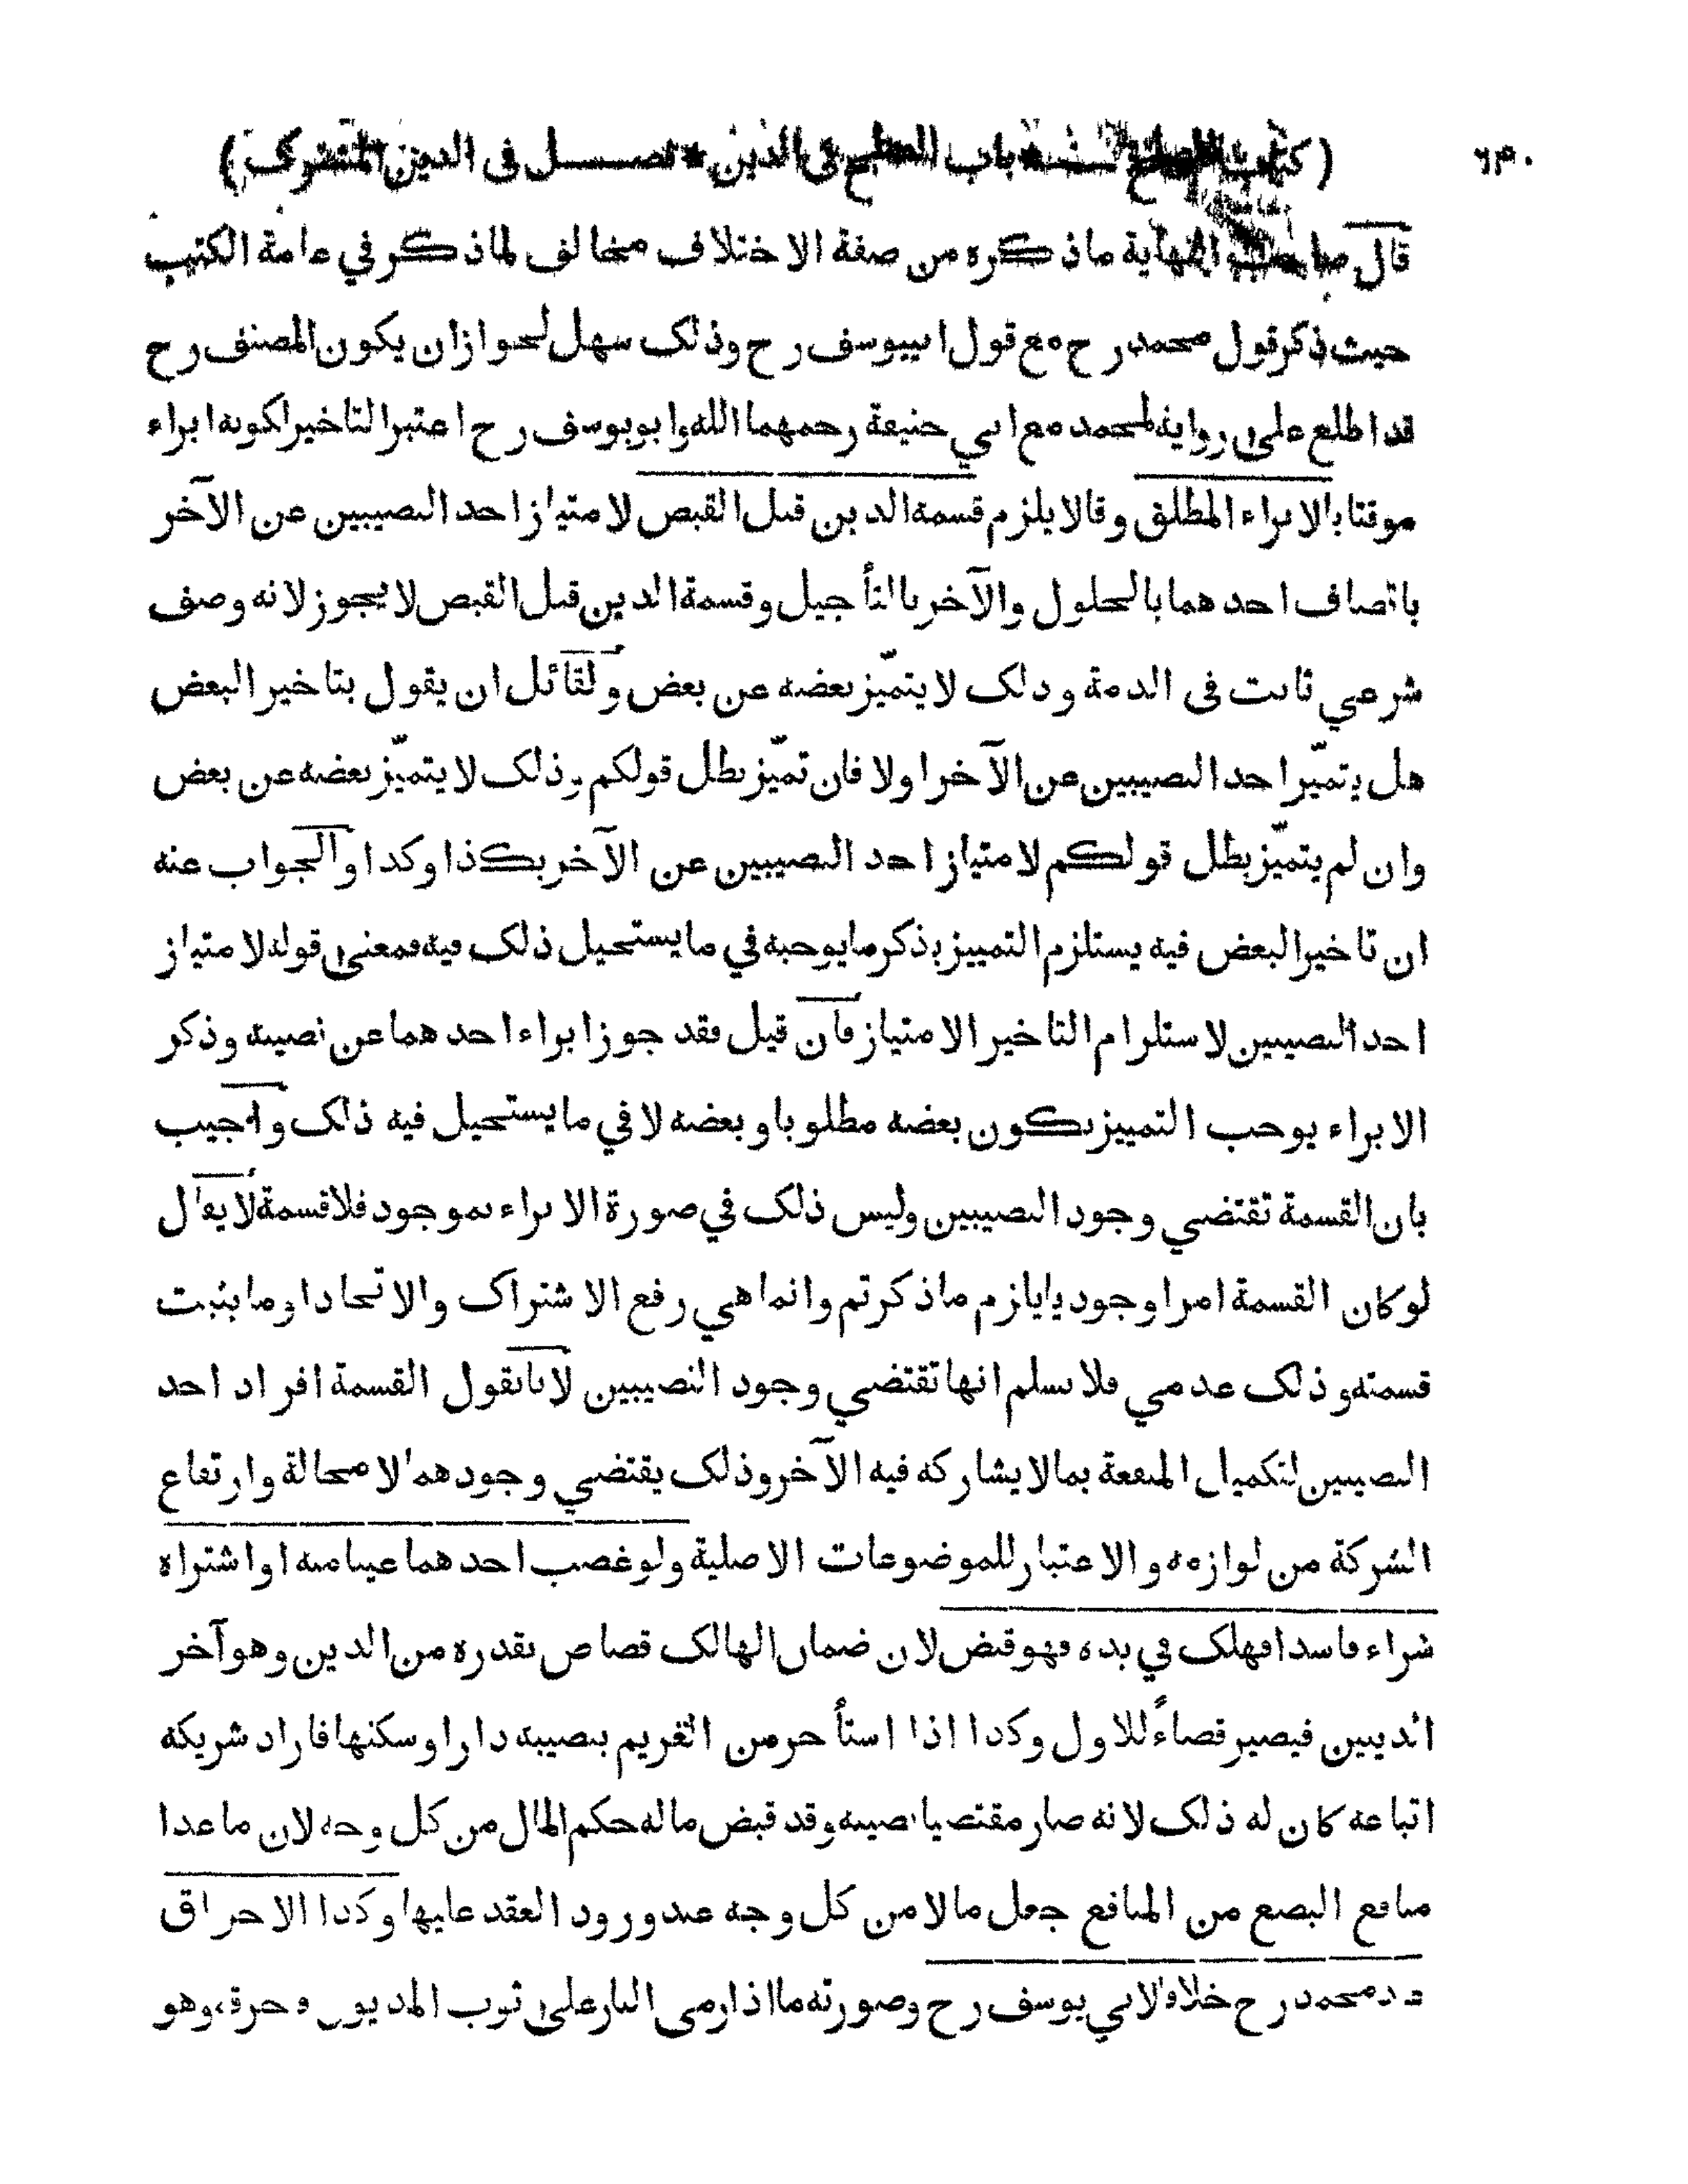 ( كتاب الصلح * باب الصلح فى الدين * فصل فى الدين المشترك ) ٦٣٠
قال صاحب النهاية ماذكره من صفة الاختلاف مخالف لماذكر في عامة الكتب
حيث ذكرقول محمد رح مع قول ابييوسف رح وذلک سهل لجوازان يكون المصنف رح
قداطلع على رواية لمحمد مع ابي حنيفة رحمهما الله وابويوسف رح اعتبرالتاخيرلكونه ابراء
موقتا بالابراء المطلق وقالا يلزم قسمة الدين قبل القبض لامتيازاحد النصيبين عن الآخر
باتصاف احدهما بالحلول والآخر بالتأجيل وقسمة الدين قبل القبض لايجوز لانه وصف
شرعي ثابت فى الذمة وذلک لايتميّز بعضه عن بعض ولقائل ان يقول بتاخير البعض
هل يتميّز احد النصيبين عن الآخر اولا فان تميّز بطل قولكم وذلک لايتميّز بعضه عن بعض
وان لم يتميّز بطل قولكم لامتياز احد النصيبين عن الآخر بكذا وكذا والجواب عنه
ان تاخيرالبعض فيه يستلزم التمييز بذكر مايوجبه في مايستحيل ذلک فيه فمعنى قوله لامتياز
احد النصيبين لاستلزام التاخير الامتياز فان قيل فقد جوز ابراء احدهما عن نصيبه وذكر
الابراء يوجب التمييز بكون بعضه مطلوبا وبعضه لا في مايستحيل فيه ذلک واجيب
بان القسمة تقتضي وجود النصيبين وليس ذلک في صورة الابراء بموجود فلاقسمة لايقال
لوكان القسمة امرا وجوديا يلزم ماذكرتم وانما هي رفع الاشتراک والاتحاد اوما يثبت
قسمته وذلک عدمي فلا نسلم انها تقتضي وجود النصيبين لانا نقول القسمة افراد احد
النصيبين لتكميل المنفعة بمالا يشاركه فيه الآخر وذلک يقتضي وجودهما لامحالة وارتفاع
الشركة من لوازمه والاعتبار للموضوعات الاصلية ولوغصب احدهما عينا منه اواشتراه
شراء فاسدا فهلک في يده فهوقبض لان ضمان الهالک قصاص بقدره من الدين وهو آخر
الدينين فيصير قصاءً للاول وكذا اذا استأجر من الغريم بنصيبه دارا وسكنها فاراد شريكه
اتباعه كان له ذلک لانه صار مقتضيا نصيبه وقد قبض ماله حكم المال من كل وجه لان ماعدا
منافع البضع من المنافع جعل مالا من كل وجه عند ورود العقد عليها وكذا الاحراق
عند محمد رح خلافا لابي يوسف رح وصورته ما اذا رمى النار على ثوب المديون وحرقه وهو